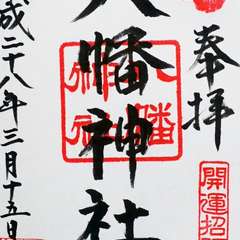 奉拝
八幡神社
平成二十八年三月十五日
開運招